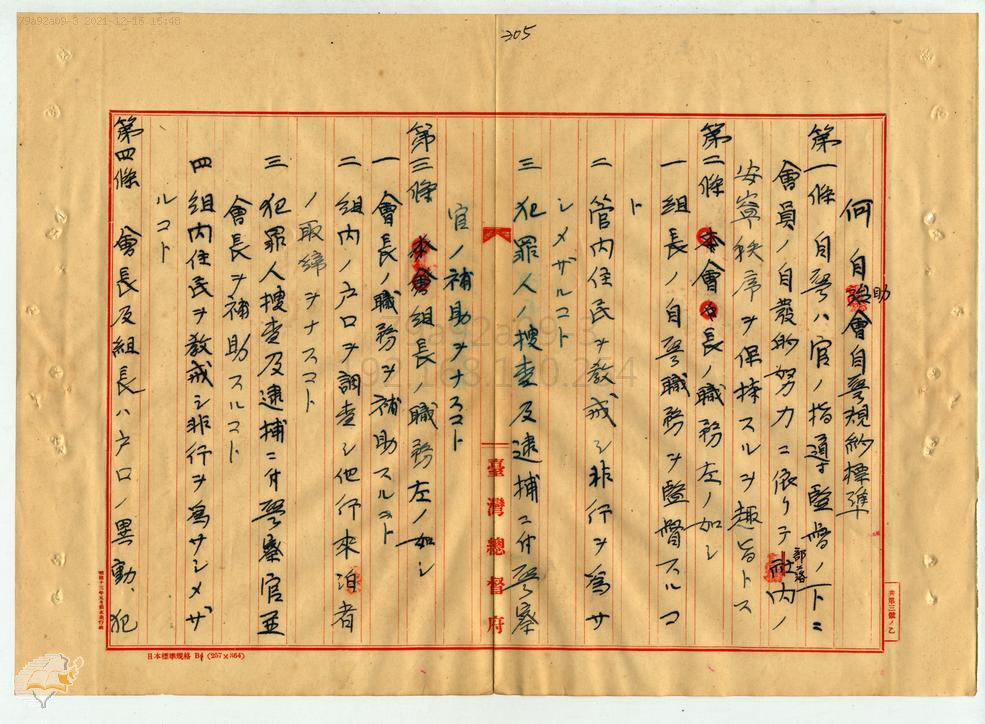 79a92a09-3 2021-12-16 15:48
305
何 自助會自警規約標準
第一條 自警ハ官ノ指導監督ノ下ニ
會員ノ自發的努力ニ依リテ部落內ノ
安寧秩序ヲ保持スルヲ趣旨トス
第二條 會長ノ職務左ノ如シ
一 組長ノ自警職務ヲ監督スルコ
ト
二 管內住民ヲ教戒シ非行ヲ為サ
シメザルコト
三 犯罪人ノ搜查及逮捕ニ付警察
臺灣總督府
官ノ補助ヲナスコト
第三條 組長ノ職務左ノ如シ
一 會長ノ職務ヲ補助スルコト
二 組內ノ戶口ヲ調查シ他行來泊者
ノ取締ヲナスコト
三 犯罪人搜查及逮捕ニ付警察官並
會長ヲ補助スルコト
四 組內住民ヲ教戒シ非行ヲ為サシメザ
ルコト
第四條 會長及組長ハ戶口ノ異動、犯
日本標準規格 B4 (257×364)
79a92a09-3